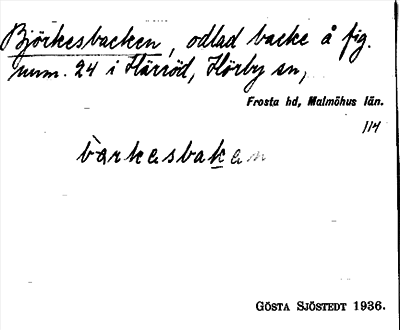 Björkesbacken, odlad backe å fig.
num. 24 i Härröd, Hörby sn,
Frosta hd, Malmöhus län.
114
bàrkasbakan
GÖSTA SJÖSTEDT 1936.